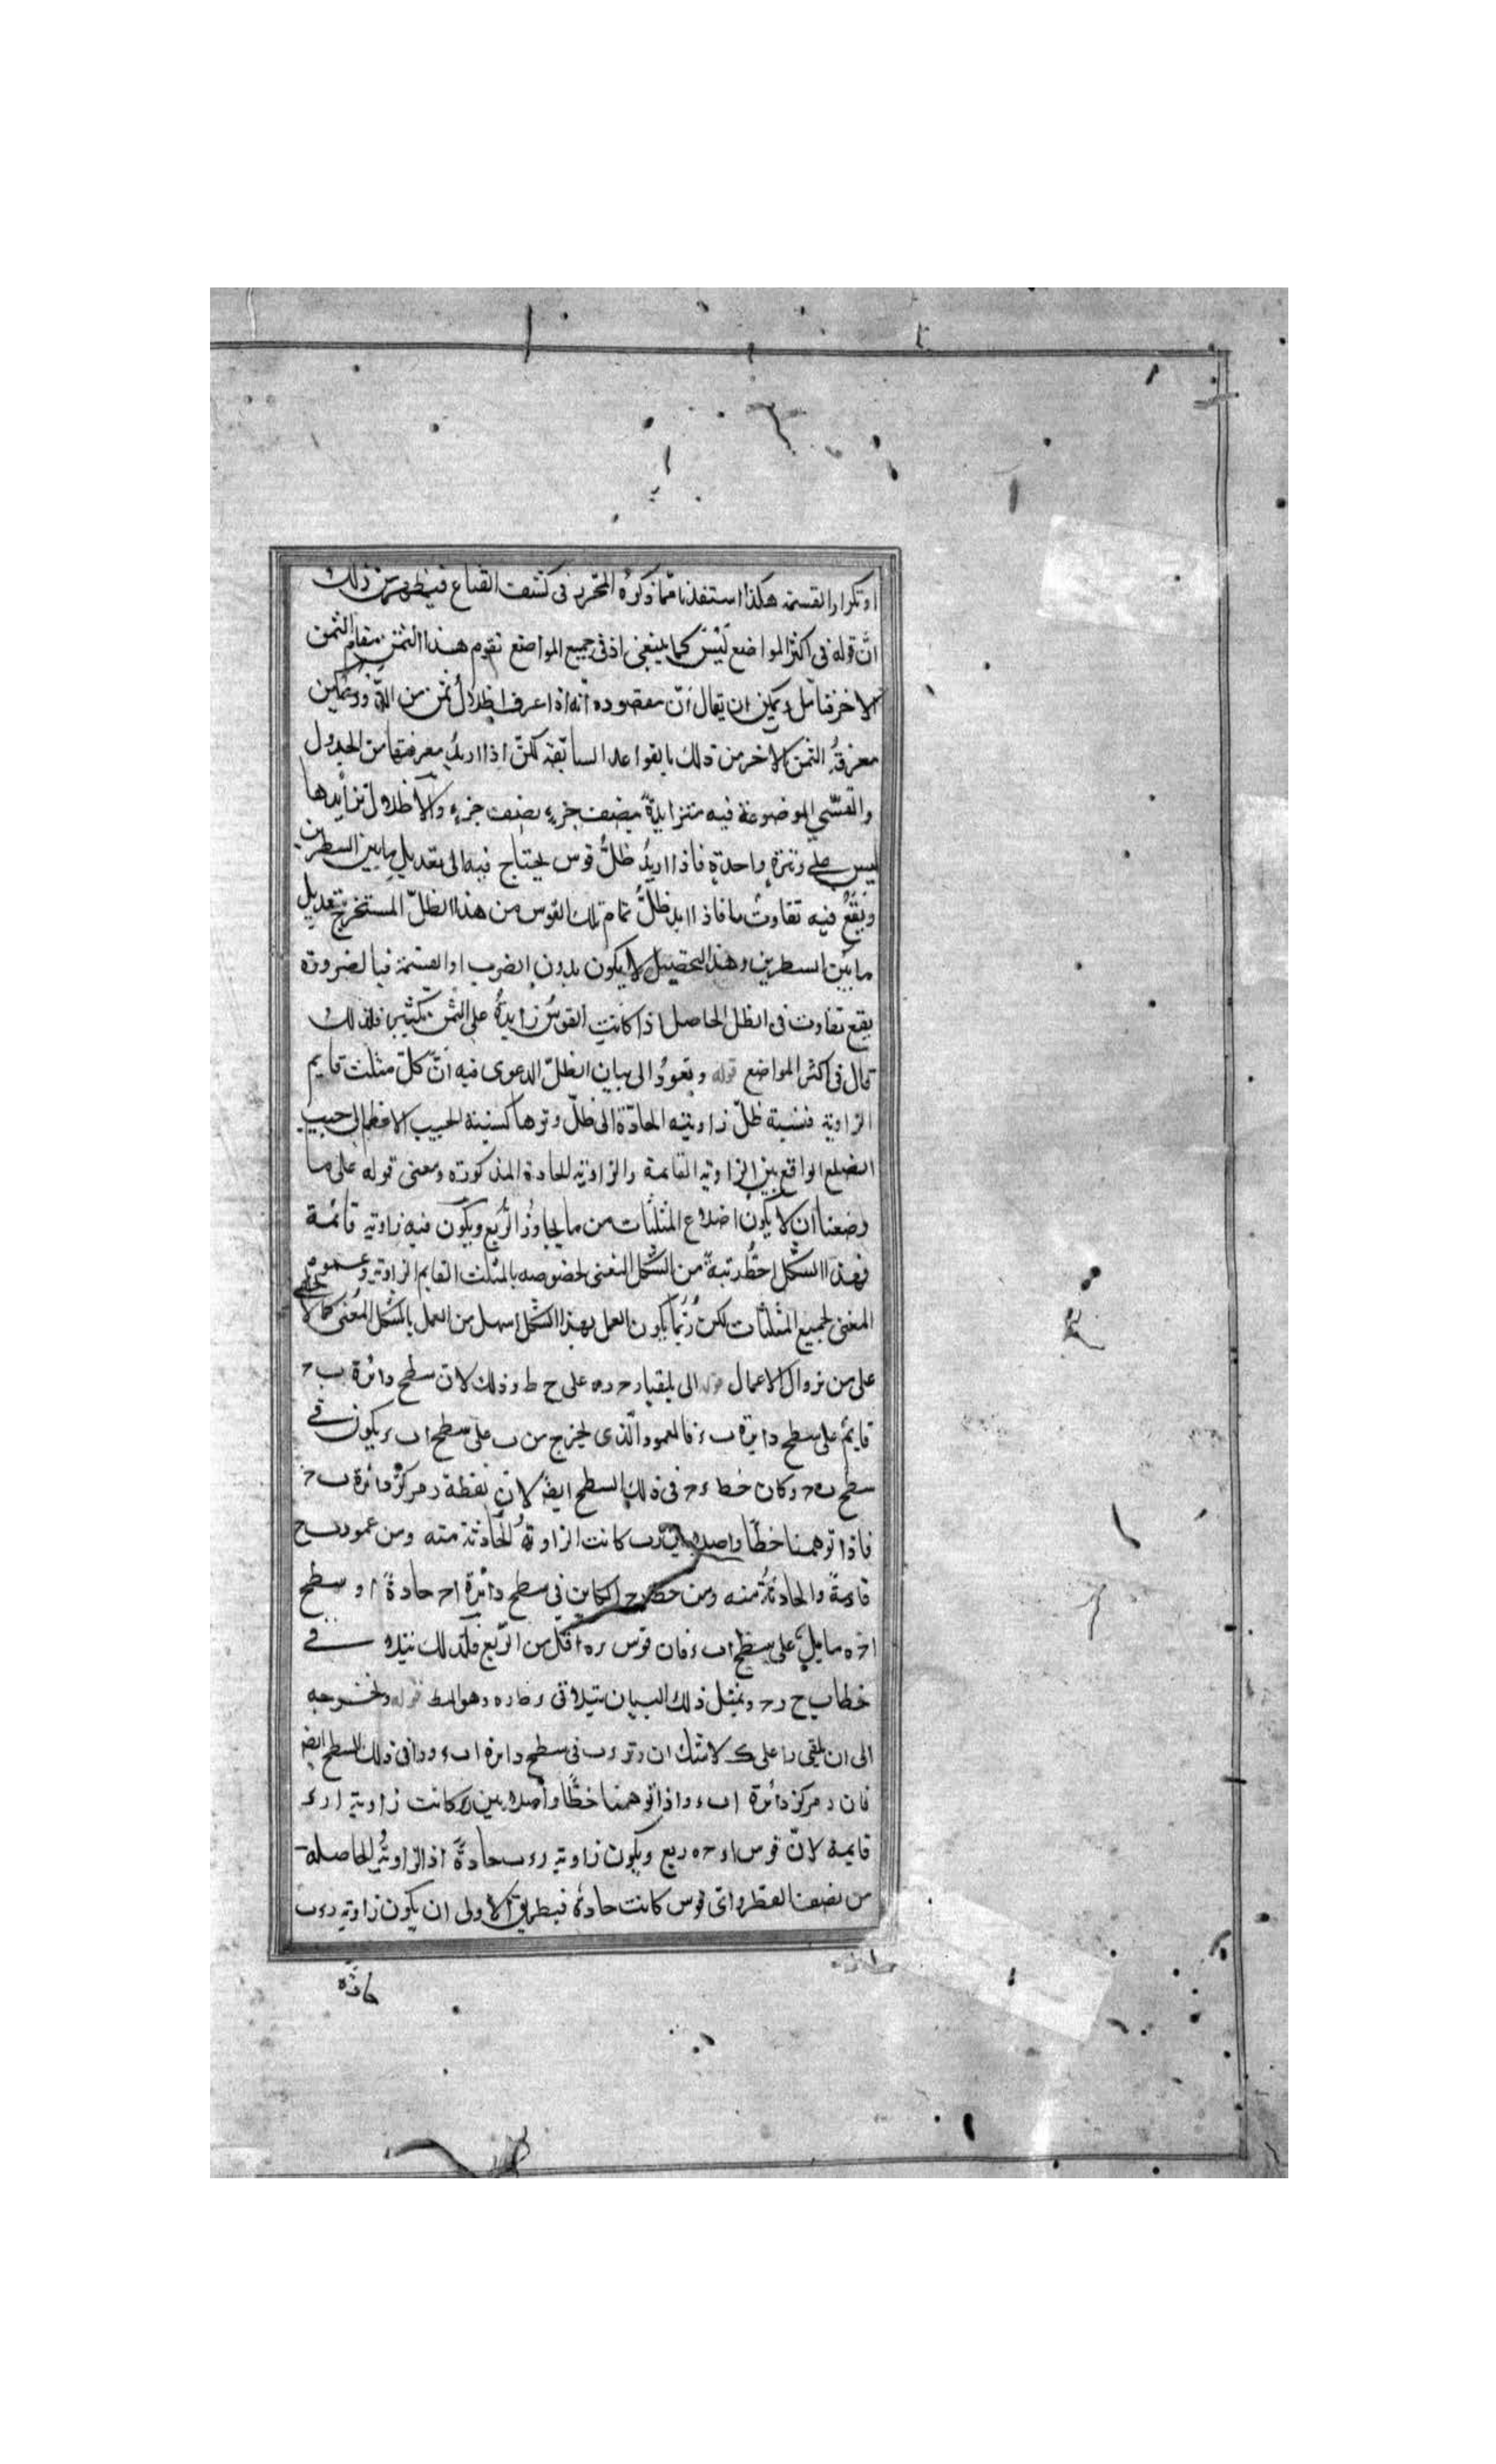 او تكرار القسمة هكذا استفدنا مما ذكره المحرر في كشف القناع فيظهر من ذلك
انّ قوله في اكثر المواضع ليس كما ينبغي اذ في جميع المواضع تقوم هذا الثمن مقام الثمن
الاخر فتأمل ويمكن ان يقال انّ مقصوده انّه اذا عرف اظلال ثمن من الدور يمكن
معرفة الثمن الاخر من ذلك بالقواعد السابقة لكن اذا اريد معرفتها من الجدول
والقسي الموضوعة فيه متزايدة بنصف جزءٍ نصف جزءٍ والاظلال تزايدها
ليس على وتيرةٍ واحدةٍ فاذا اريد ظلّ قوس يحتاج فيه الى تعديل ما بين السطرين
ويقع فيه تفاوت ما فاذا اريد ظلّ تمام تلك القوس من هذا الظلّ المستخرج بتعديل
ما بين السطرين وهذا التحصيل لا يكون بدون الضرب او القسمة فبالضرورة
يقع تفاوت في الظل الحاصل اذا كانت القوس زايدة على الثمن بكثير فلذلك
قال في اكثر المواضع قوله ونعود الى بيان الظلّ الدعوى فيه انّ كلّ مثلث قايم
الزاوية فنسبة ظلّ زاويته الحادّة الى ظلّ وترها كنسبة الجيب الاعظم الى جيب
الضلع الواقع بين الزاوية القائمة والزاوية الحادة المذكورة ومعنى قوله على ما
وضعنا ان لا يكون اضلاع المثلثات من ما يجاوز الربع ويكون فيه زاوية قائمة
فهذا الشكل احطّ رتبةً من الشكل المغني لخصوصه بالمثلث القايم الزاوية وعموم
المغني لجميع المثلثات لكن ربّما يكون العمل بهذا الشكل اسهل من العمل بالشكل المغني كما لا يخفى
على من زوال الاعمال قوله الى يلقيا ر ح ره على ح ط وذلك لان سطح دائرة ب ح
قايم على سطح دايرة ب ء فالعمود الذي يخرج من ب على سطح اب ء يكون في
سطح ب ه ح وكان خط ء ح في ذلك السطح ايضا لان نقطة ر مركز دائرة ب ح
فاذا توهمنا خطّا واصلا بين رب كانت الزاوية الحادثة منه ومن عمود ب ح
قائمة والحادثة منه ومن خط ر ح الكاين في سطح دائرة ا ح حادةً او سطح
ا ح ه مايل على سطح اب ء فان قوس ره اقل من الربع فلذلك يتلاقى
خطا ب ح ر ح وبمثل ذلك البيان يتلاقى ء ط ره وهو المط قوله ونخرجه
الى ان يلقى دا على ك لا شك ان وتر ء ب في سطح دايرة اب ء ودا في ذلك السطح ايضا
فان د مركز دائرة اب ء واذا توهمنا خطّا واصلا بين رء كانت زاوية ارء
قايمة لانّ قوس اء ح ه ربع ويكون زاوية رء ب حادةً اذ الزاوية الحاصلة
من نصف القطر واي قوس كانت حادة فبطريق الاولى ان يكون زاوية رء ب
حادة